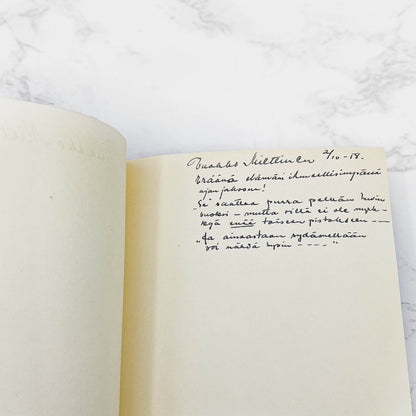 Vuokko Miettinen 2/10 -58.
Eräänä elämäni ihmeellisimpänä
ajanjaksona!
Se saattaa purra pelkän huvin
vuoksi – mutta sillä ei ole myrk-
kyä enää toiseen pistokseen ----
"Ja ainoastaan sydämellään
voi nähdä hyvin ----"